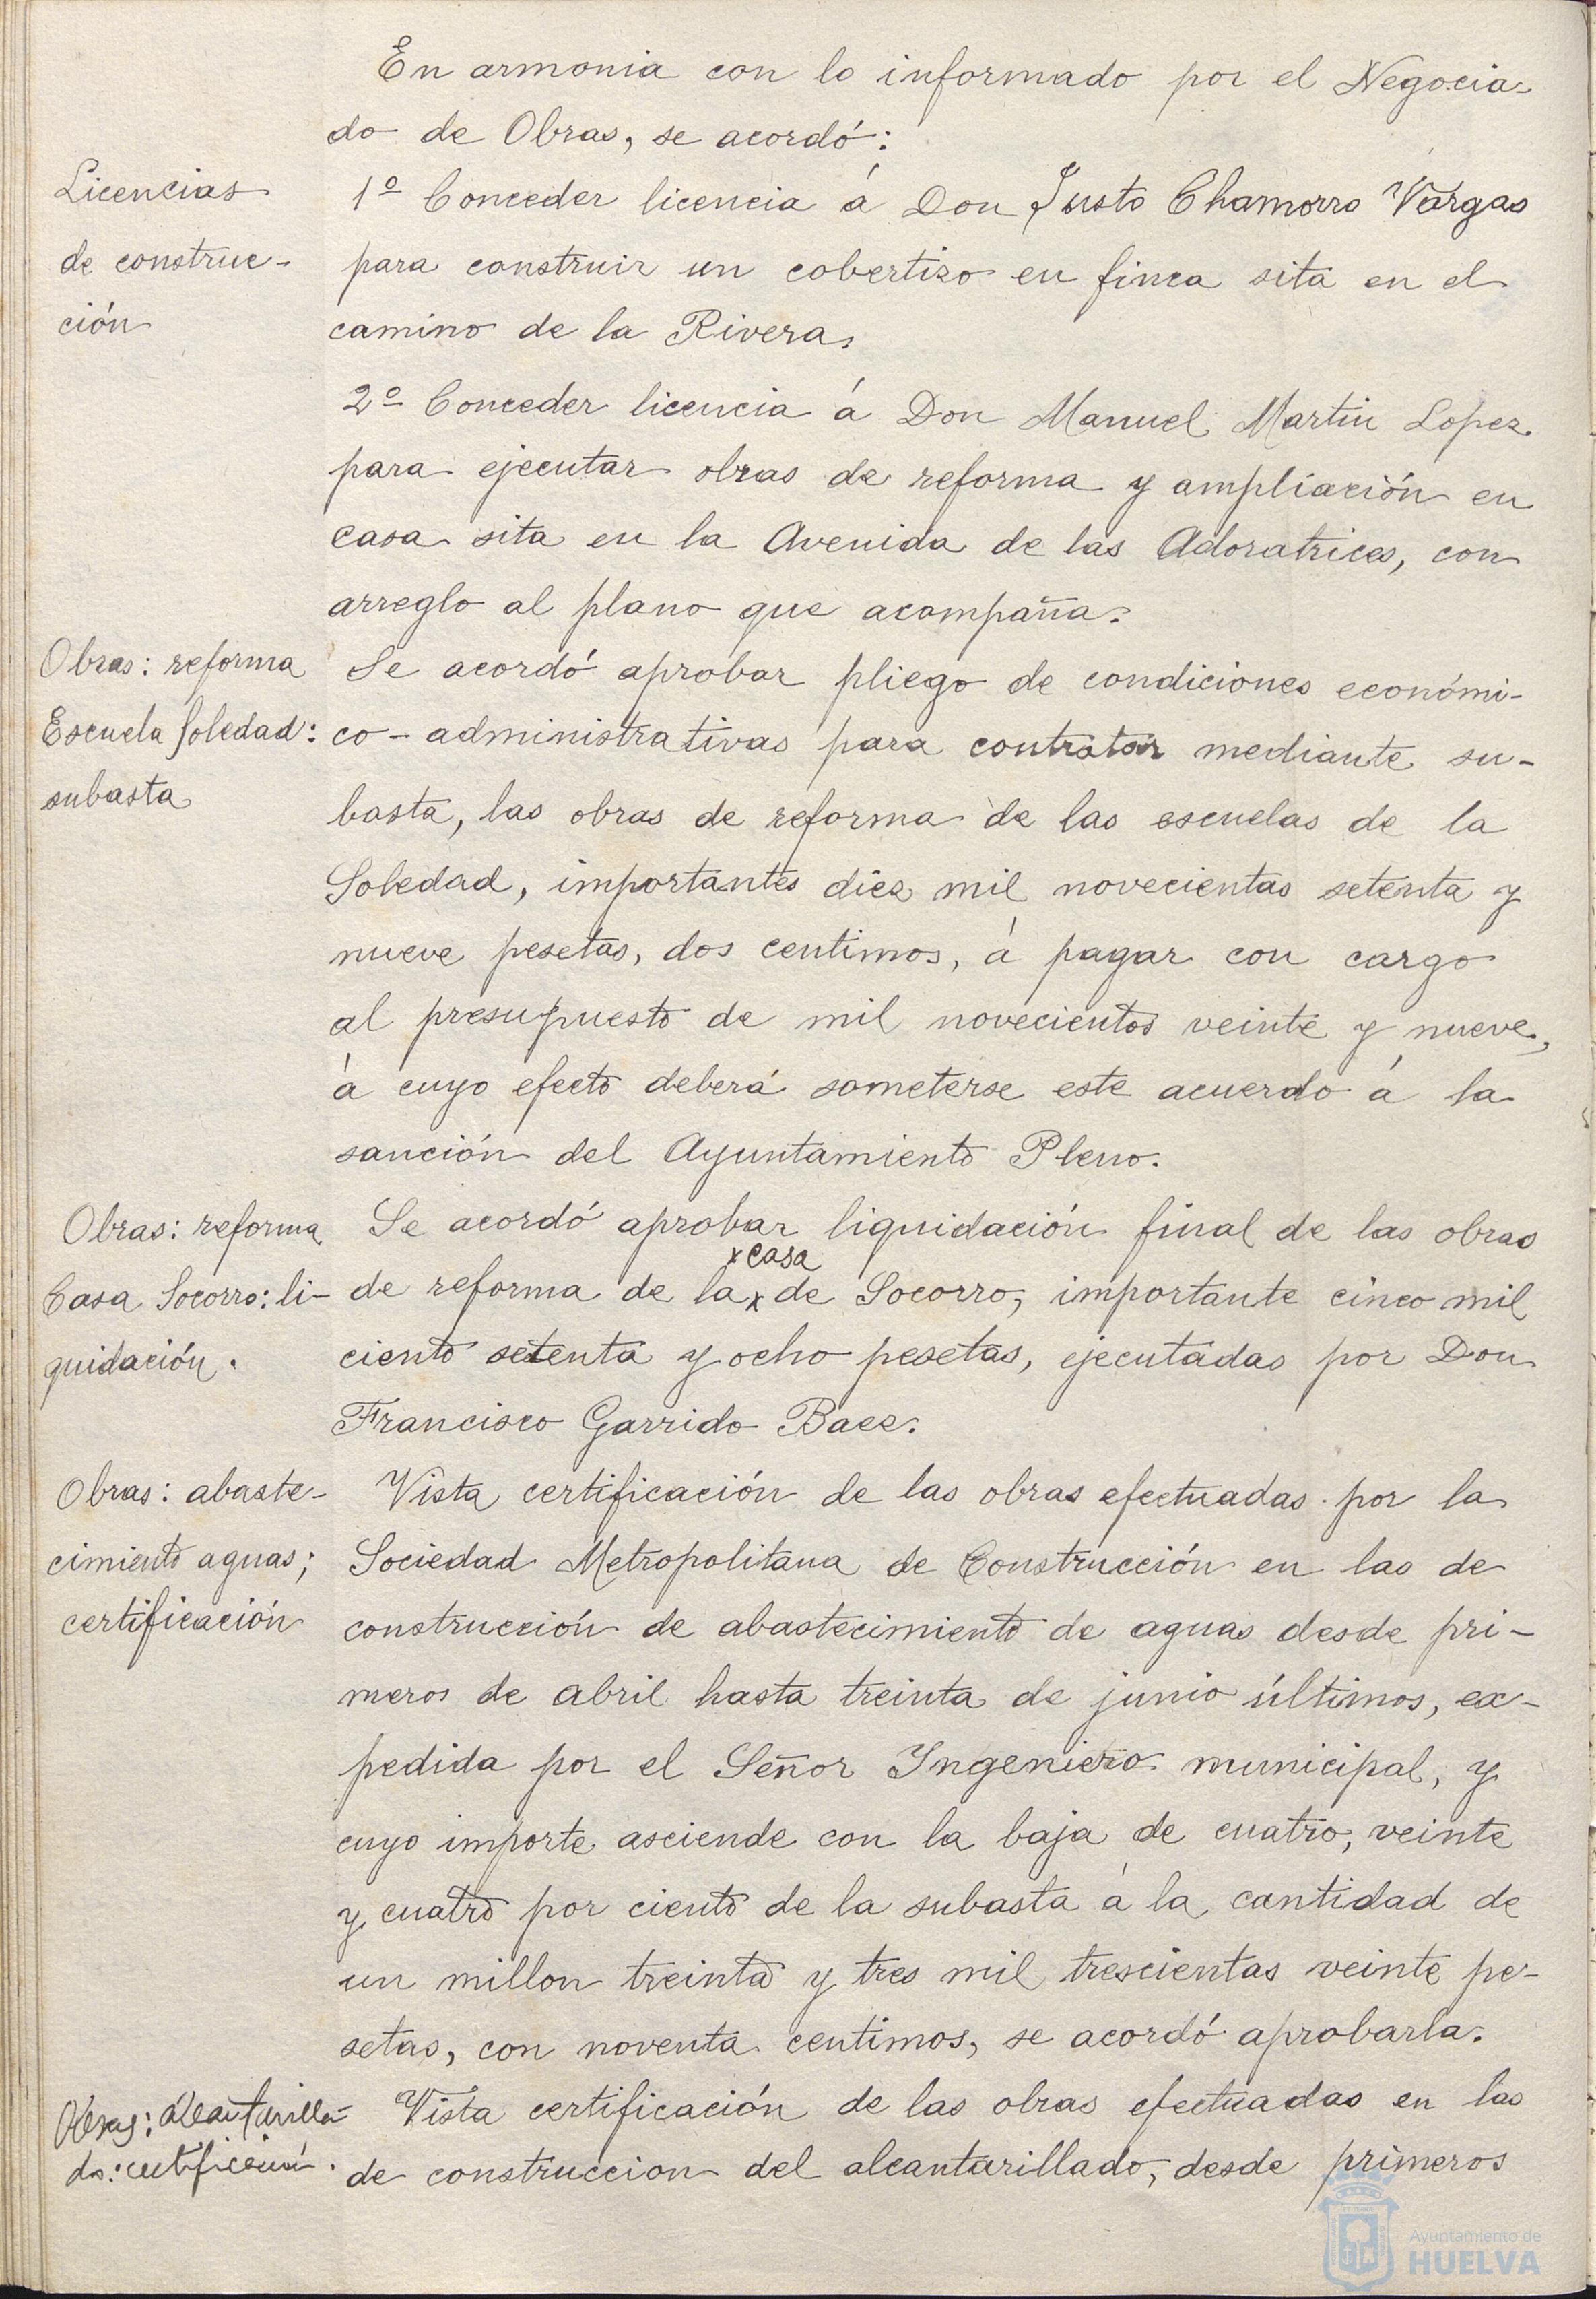 En armonia con lo informado por el Negocia-
do de Obras, se acordó:
Licencias
de construc-
ción
1º Conceder licencia á Don Justo Chamorro Vargas
para construir un cobertizo en finca sita en el
camino de la Rivera.
2º Conceder licencia á Don Manuel Martin Lopez
para ejecutar obras de reforma y ampliación en
casa sita en la Avenida de las Adoratrices, con
arreglo al plano que acompaña.
Obras: reforma
Escuela Soledad:
subasta
Se acordó aprobar pliego de condiciones económi-
co-administrativas para contratar mediante su-
basta, las obras de reforma de las escuelas de la
Soledad, importantes diez mil novecientas setenta y
nueve pesetas, dos centimos, á pagar con cargo
al presupuesto de mil novecientos veinte y nueve,
á cuyo efecto deberá someterse este acuerdo á la
sanción del Ayuntamiento Pleno.
Obras: reforma
Casa Socorro: li-
quidación.
Se acordó aprobar liquidación final de las obras
x casa
de reforma de la x de Socorro, importante cinco mil
ciento setenta y ocho pesetas, ejecutadas por Don
Francisco Garrido Baez.
Obras: abaste-
cimiento aguas;
certificación
Vista certificación de las obras efectuadas por la
Sociedad Metropolitana de Construcción en las de
construcción de abastecimiento de aguas desde pri-
meros de abril hasta treinta de junio últimos, ex-
pedida por el Señor Ingeniero municipal, y
cuyo importe asciende con la baja de cuatro, veinte
y cuatro por ciento de la subasta á la cantidad de
un millon treinta y tres mil trescientas veinte pe-
setas, con noventa centimos, se acordó aprobarla.
Obras: alcantarilla-
do: certificación.
Vista certificación de las obras efectuadas en las
de construccion del alcantarillado, desde primeros
Ayuntamiento de
HUELVA